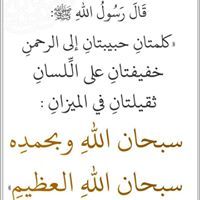 قَالَ رَسُولُ اللهِ ﷺ:
«كلمتانِ حبيبتانِ إلى الرحمنِ
خفيفتانِ على الِّلسانِ
ثقيلتانِ في الميزانِ :
سبحان اللهِ وبحمدِه
سبحان اللهِ العظيمِ»